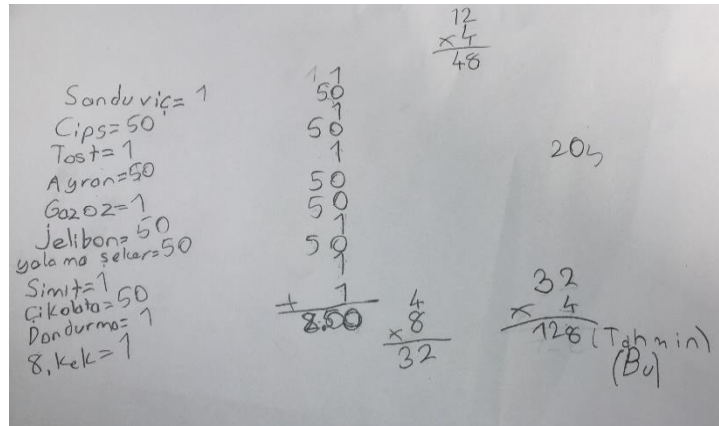 Sanduviç= 1
Cips= 50
Tost= 1
Ayran=50
Gazoz= 1
Jelibon= 50
yalama şeker=50
Simit= 1
Çikolata= 50
Dondurma= 1
8, kek= 1
1 1
50
1
50
1
50
50
1
50
1
+ 1
8.50
12
x 4
48
4
x 8
32
32
x 4
128 (Tahmin)
(Bu)